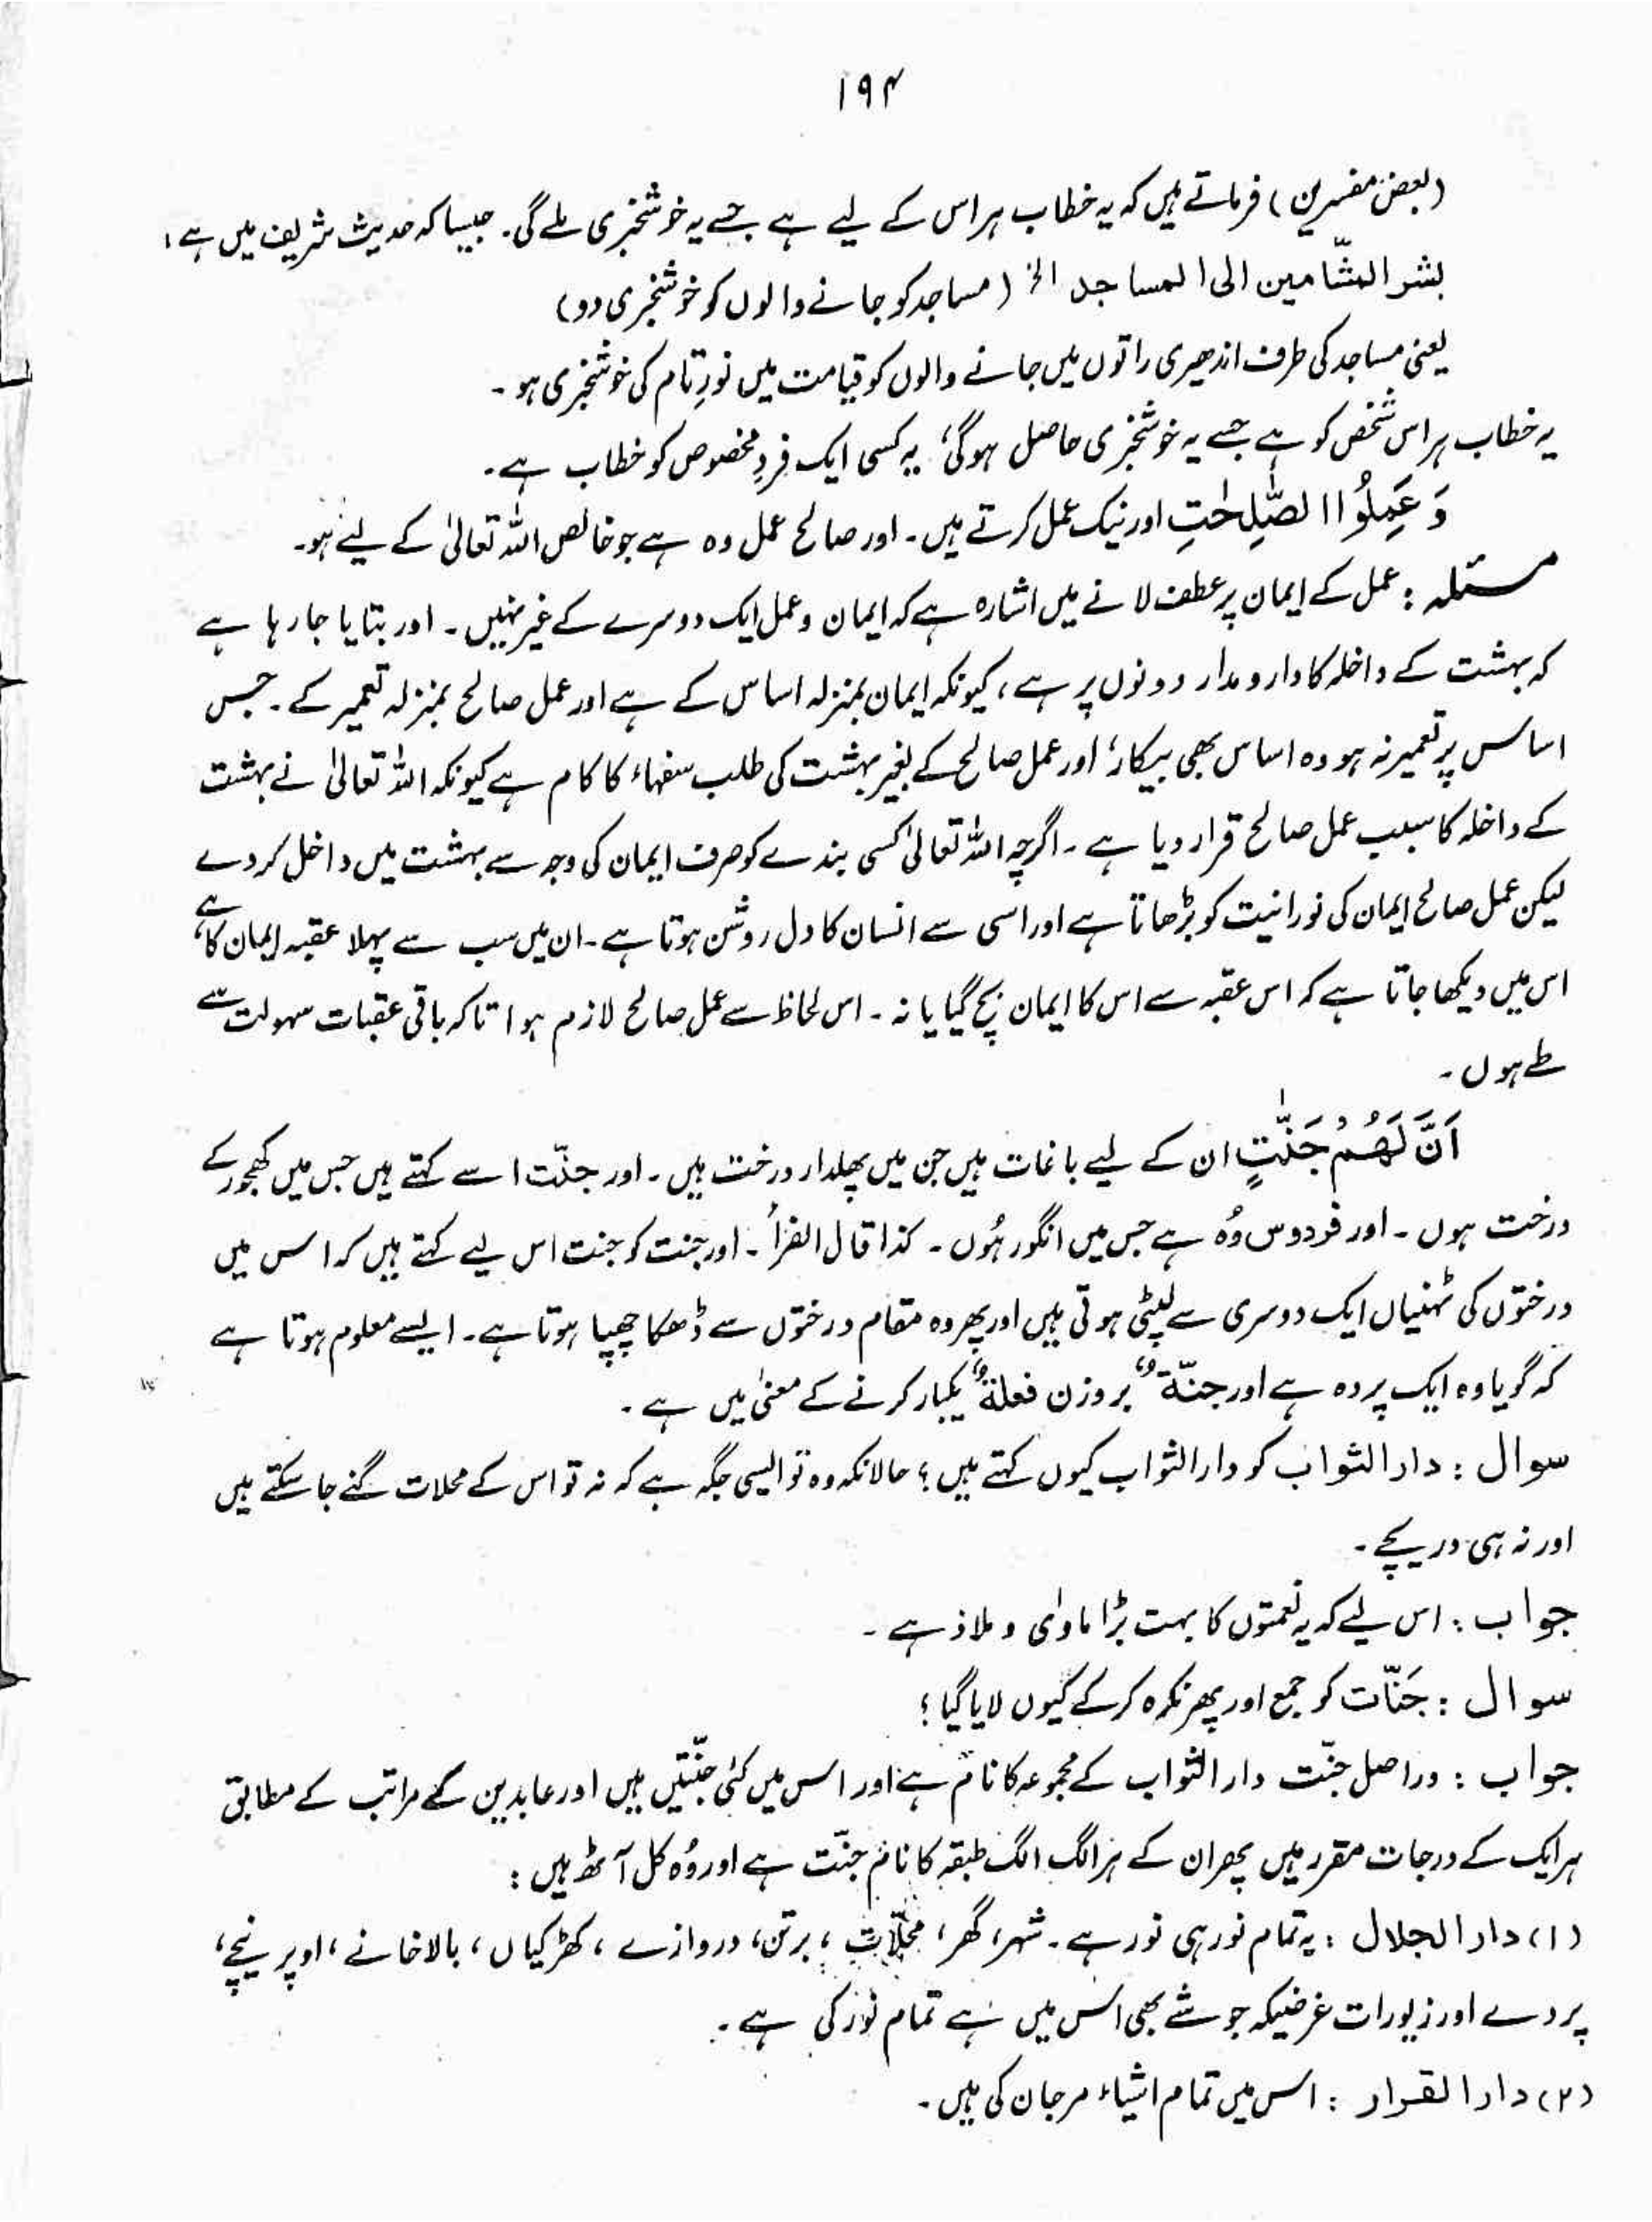 ۱۹۴
(بعض مفسرین) فرماتے ہیں کہ یہ خطاب ہر اس کے لیے ہے جسے یہ خوشخبری ملے گی۔ جیسا کہ حدیث شریف میں ہے:
بشر المشّامین الی المساجد الخ (مساجد کو جانے والوں کو خوشخبری دو)
یعنی مساجد کی طرف اندھیری راتوں میں جانے والوں کو قیامت میں نورِ تام کی خوشخبری ہو۔
یہ خطاب ہر اس شخص کو ہے جسے یہ خوشخبری حاصل ہوگی، یہ کسی ایک فردِ مخصوص کو خطاب ہے۔
وَ عَمِلُوا الصّٰلِحٰتِ اور نیک عمل کرتے ہیں۔ اور صالح عمل وہ ہے جو خالص اللہ تعالیٰ کے لیے ہو۔
مسئلہ : عمل کے ایمان پر عطف لانے میں اشارہ ہے کہ ایمان و عمل ایک دوسرے کے غیر نہیں۔ اور بتایا جا رہا ہے
کہ بہشت کے داخلہ کا دارومدار دونوں پر ہے، کیونکہ ایمان بمنزلہ اساس کے ہے اور عمل صالح بمنزلہ تعمیر کے۔ جس
اساس پر تعمیر نہ ہو وہ اساس بھی بیکار، اور عمل صالح کے بغیر بہشت کی طلب سفہاء کا کام ہے کیونکہ اللہ تعالیٰ نے بہشت
کے داخلہ کا سبب عمل صالح قرار دیا ہے۔ اگرچہ اللہ تعالیٰ کسی بندے کو صرف ایمان کی وجہ سے بہشت میں داخل کر دے
لیکن عمل صالح ایمان کی نورانیت کو بڑھاتا ہے اور اسی سے انسان کا دل روشن ہوتا ہے۔ ان میں سب سے پہلا عقبہ ایمان کا ہے،
اس میں دیکھا جاتا ہے کہ اس عقبہ سے اس کا ایمان بچ گیا یا نہ۔ اس لحاظ سے عمل صالح لازم ہوا تاکہ باقی عقبات سہولت سے
طے ہوں۔
اَنَّ لَھُمْ جَنّٰتٍ ان کے لیے باغات ہیں جن میں پھلدار درخت ہیں۔ اور جنّت اسے کہتے ہیں جس میں کھجور کے
درخت ہوں۔ اور فردوس وُہ ہے جس میں انگور ہُوں۔ کذا قال الفرأ۔ اور جنت کو جنت اس لیے کہتے ہیں کہ اس میں
درختوں کی ٹہنیاں ایک دوسری سے لپٹی ہوتی ہیں اور پھر وہ مقام درختوں سے ڈھکا چھپا ہوتا ہے۔ ایسے معلوم ہوتا ہے
کہ گویا وہ ایک پردہ ہے اور جنّۃٌ بروزن فعلۃٌ یکبار کرنے کے معنیٰ میں ہے۔
سوال : دار الثواب کو دار الثواب کیوں کہتے ہیں؛ حالانکہ وہ تو ایسی جگہ ہے کہ نہ تو اس کے محلات گنے جا سکتے ہیں
اور نہ ہی دریچے۔
جواب : اس لیے کہ یہ نعمتوں کا بہت بڑا ماوٰی و ملاذ ہے۔
سوال : جَنّات کو جمع اور پھر نکرہ کر کے کیوں لایا گیا؛
جواب : دراصل جنّت دار الثواب کے مجموعہ کا نام ہے اور اس میں کئی جنّتیں ہیں اور عابدین کے مراتب کے مطابق
ہر ایک کے درجات مقرر ہیں پھر ان کے ہر الگ الگ طبقہ کا نام جنّت ہے اور وُہ کل آٹھ ہیں :
(۱) دار الجلال : یہ تمام نور ہی نور ہے۔ شہر، گھر، محلّات، برتن، دروازے، کھڑکیاں، بالاخانے، اوپر نیچے،
پردے اور زیورات غرضیکہ جو شے بھی اس میں ہے تمام نور کی ہے۔
(۲) دار القرار : اس میں تمام اشیاء مرجان کی ہیں۔